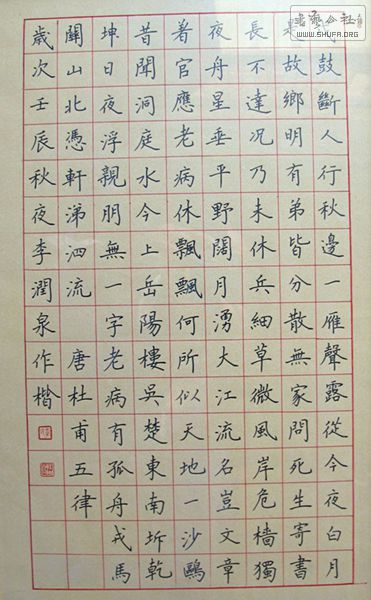 鼓斷人行秋邊一雁聲露從今夜白月
是故鄉明有弟皆分散無家問死生寄書
長不達況乃未休兵細草微風岸危檣獨
夜舟星垂平野闊月湧大江流名豈文章
着官應老病休飄飄何所似天地一沙鷗
昔聞洞庭水今上岳陽樓吳楚東南坼乾
坤日夜浮親朋無一字老病有孤舟戎馬
關山北憑軒涕泗流 唐杜甫五律
歲次壬辰秋夜李潤泉作楷
WWW.SHUFA.ORG